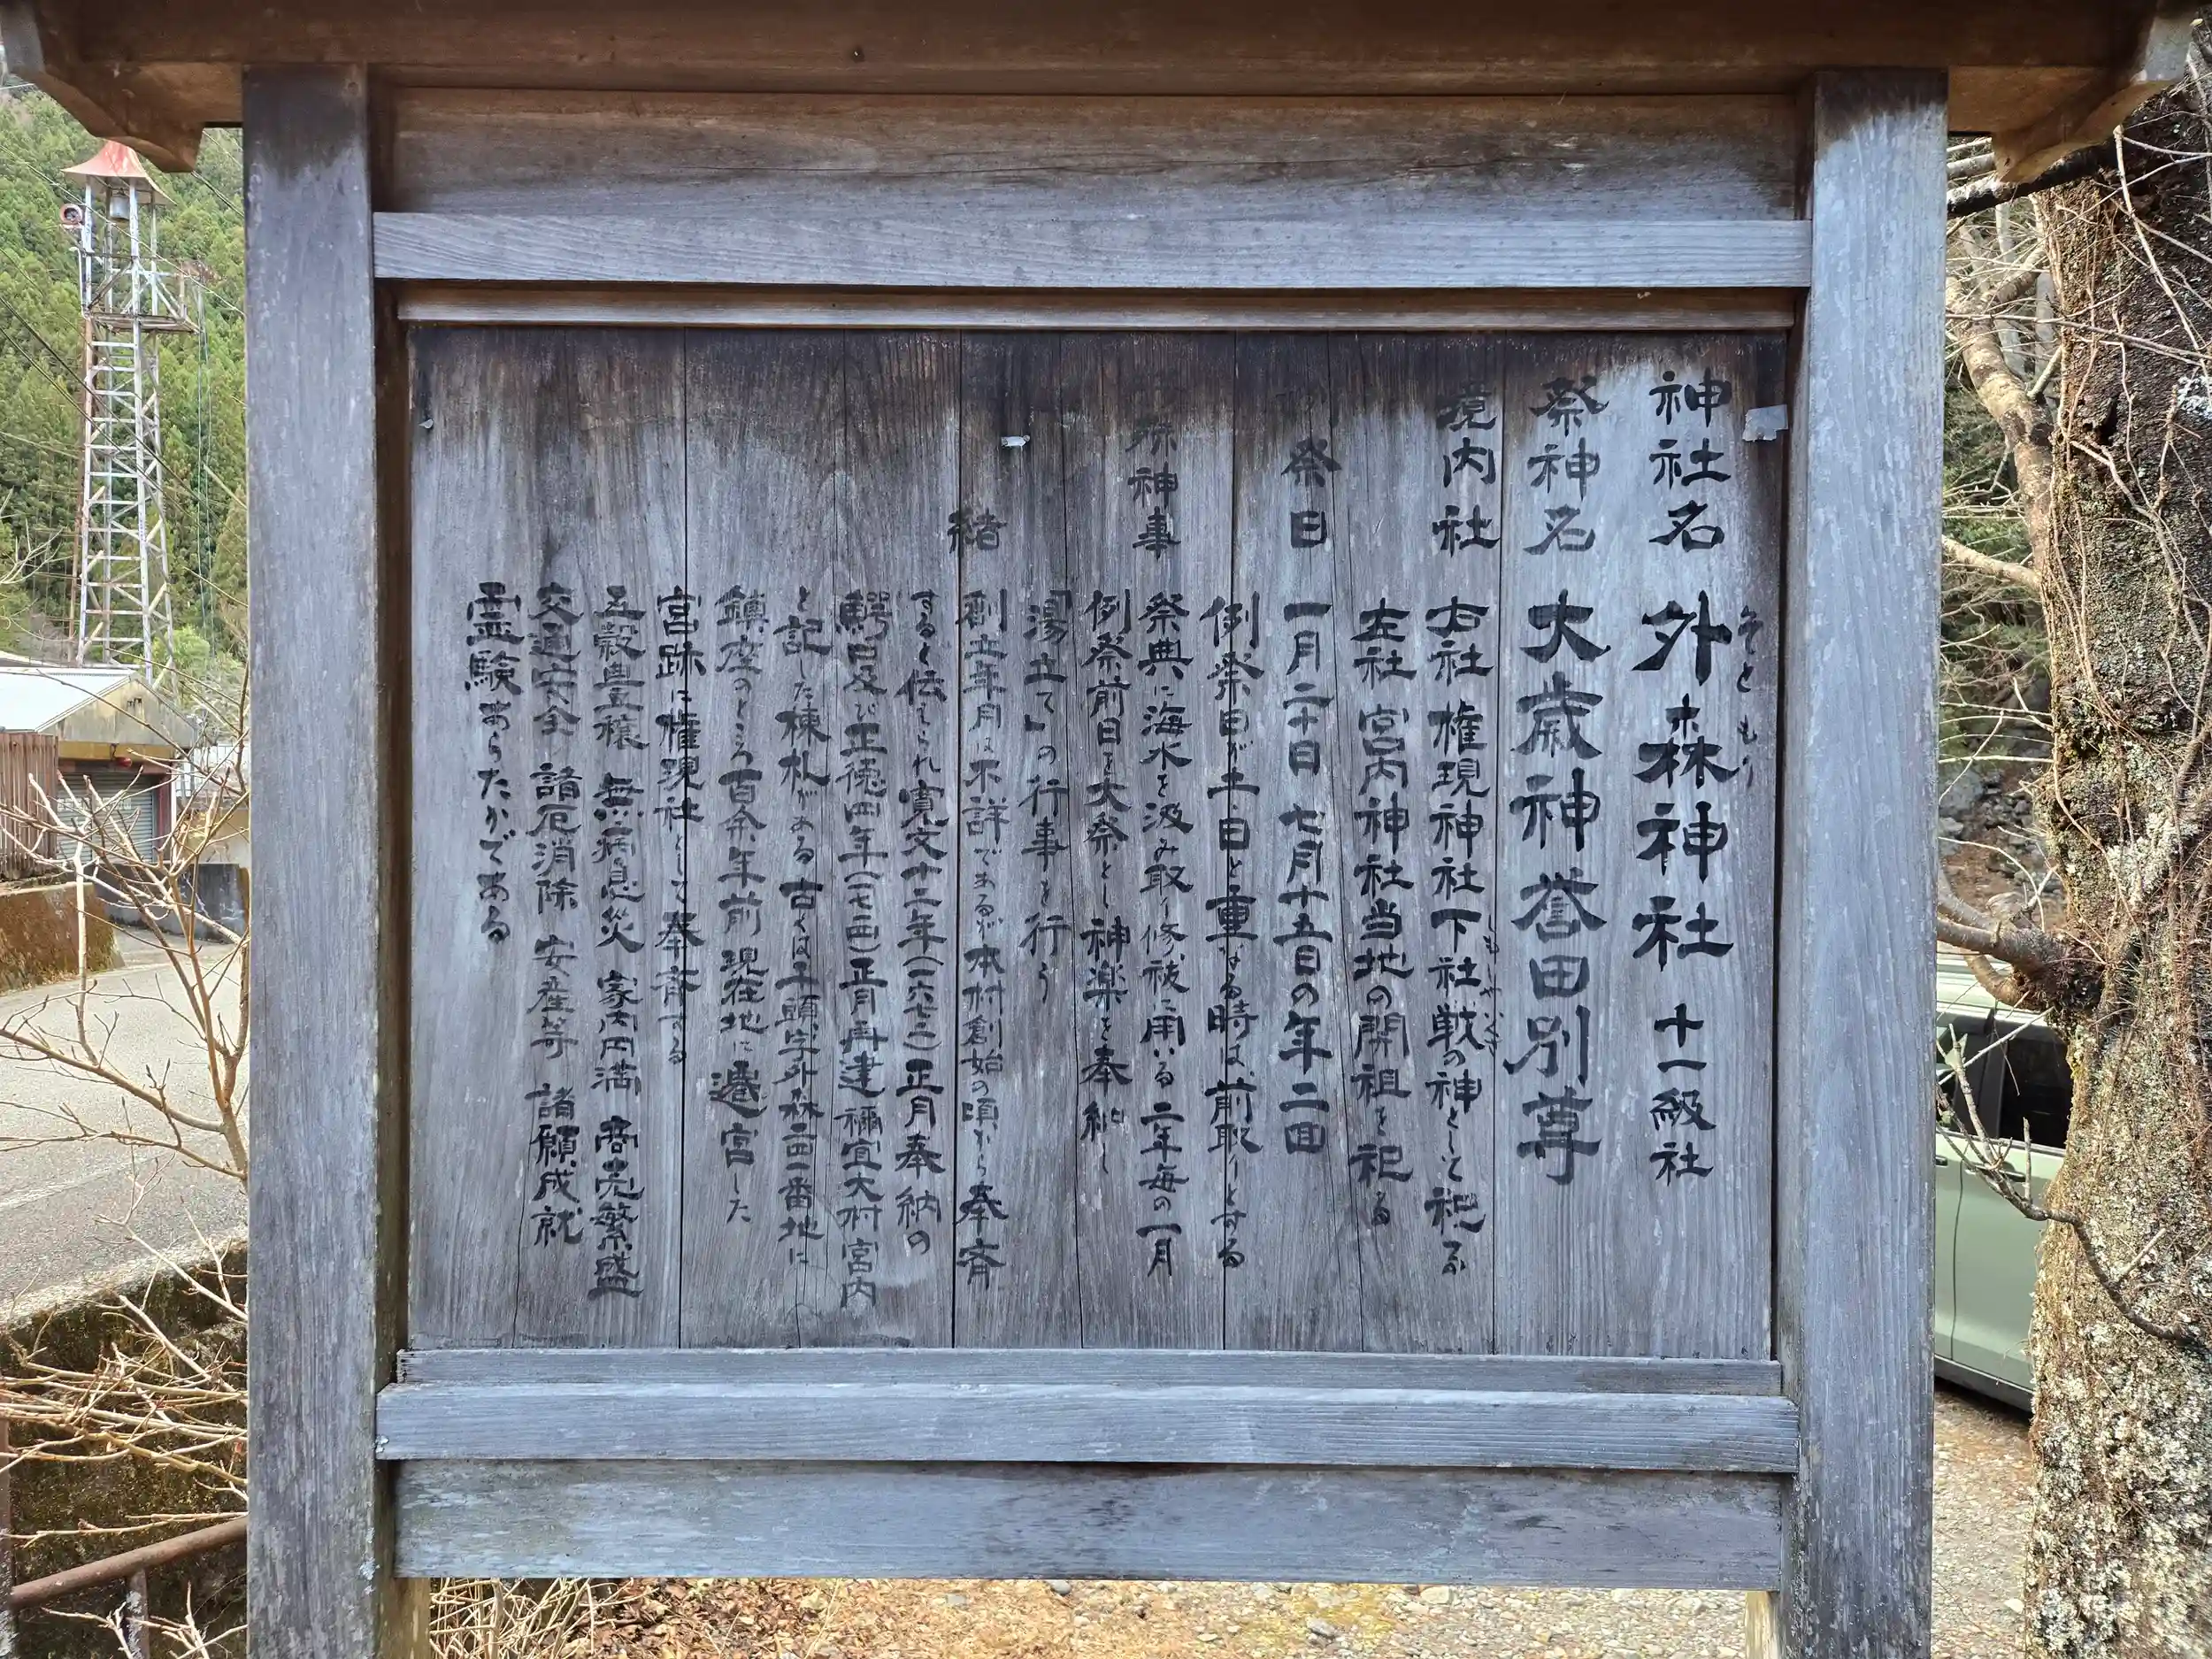 神社名 外森神社 十一級社
そともり
祭神名 大歳神 誉田別尊
境内社 右社 権現神社下社戦の神として祀る
しもしゃいくさ
左社 宮内神社当地の開祖を祀る
祭日 一月二十日 七月十五日の年二回
例祭日が土、日と重なる時は、前取りとする
殊神事 祭典に海水を汲み取り修祓に用いる 二年毎の一月
例祭前日を大祭とし神楽を奉納し
「湯立て」の行事を行う
緒 創立年月は不詳であるが本村創始の頃から奉斉
すると伝えられ寛文十二年(一六七二)正月奉納の
鰐口及び正徳四年(一七一四)正月再建 禰宜大村宮内
と記した棟札がある 古くは千頭字外森二四一番地に
鎮座のところ百余年前 現在地に遷宮した
宮跡に権現社として奉斉する
五穀豊穣 無病息災 家内円満 商売繁盛
交通安全 諸厄消除 安産等 諸願成就
霊験あらたかである